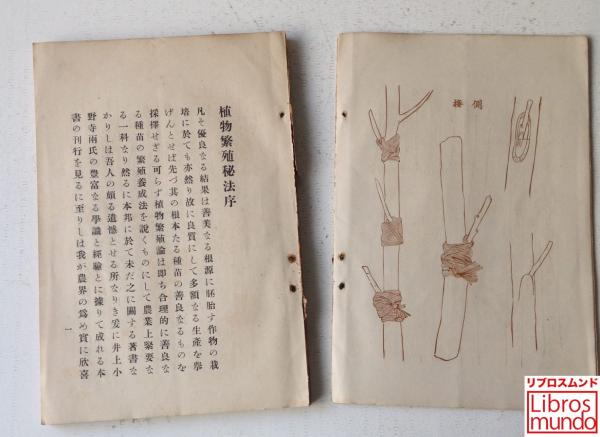 植物繁殖秘法序
凡そ優良なる結果は善美なる根源に胚胎す作物の栽
培に於ても亦然り故に良質にして多額なる生產を擧
げんとせば先づ其の根本たる種苗の善良なるものを
採擇せざる可らず植物繁殖論は即ち合理的に善良な
る種苗の繁殖養成法を說くものにして農業上緊要な
る一科なり然るに本邦に於て未だ之に關する著書な
かりしは吾人の頗る遺憾とせる所なりき爰に井上小
野寺兩氏の豊富なる學識と經驗とに據りて成れる本
書の刊行を見るに至りしは我が農界の爲め實に欣喜
一
側接
リブロスムンド
Libros
mundo